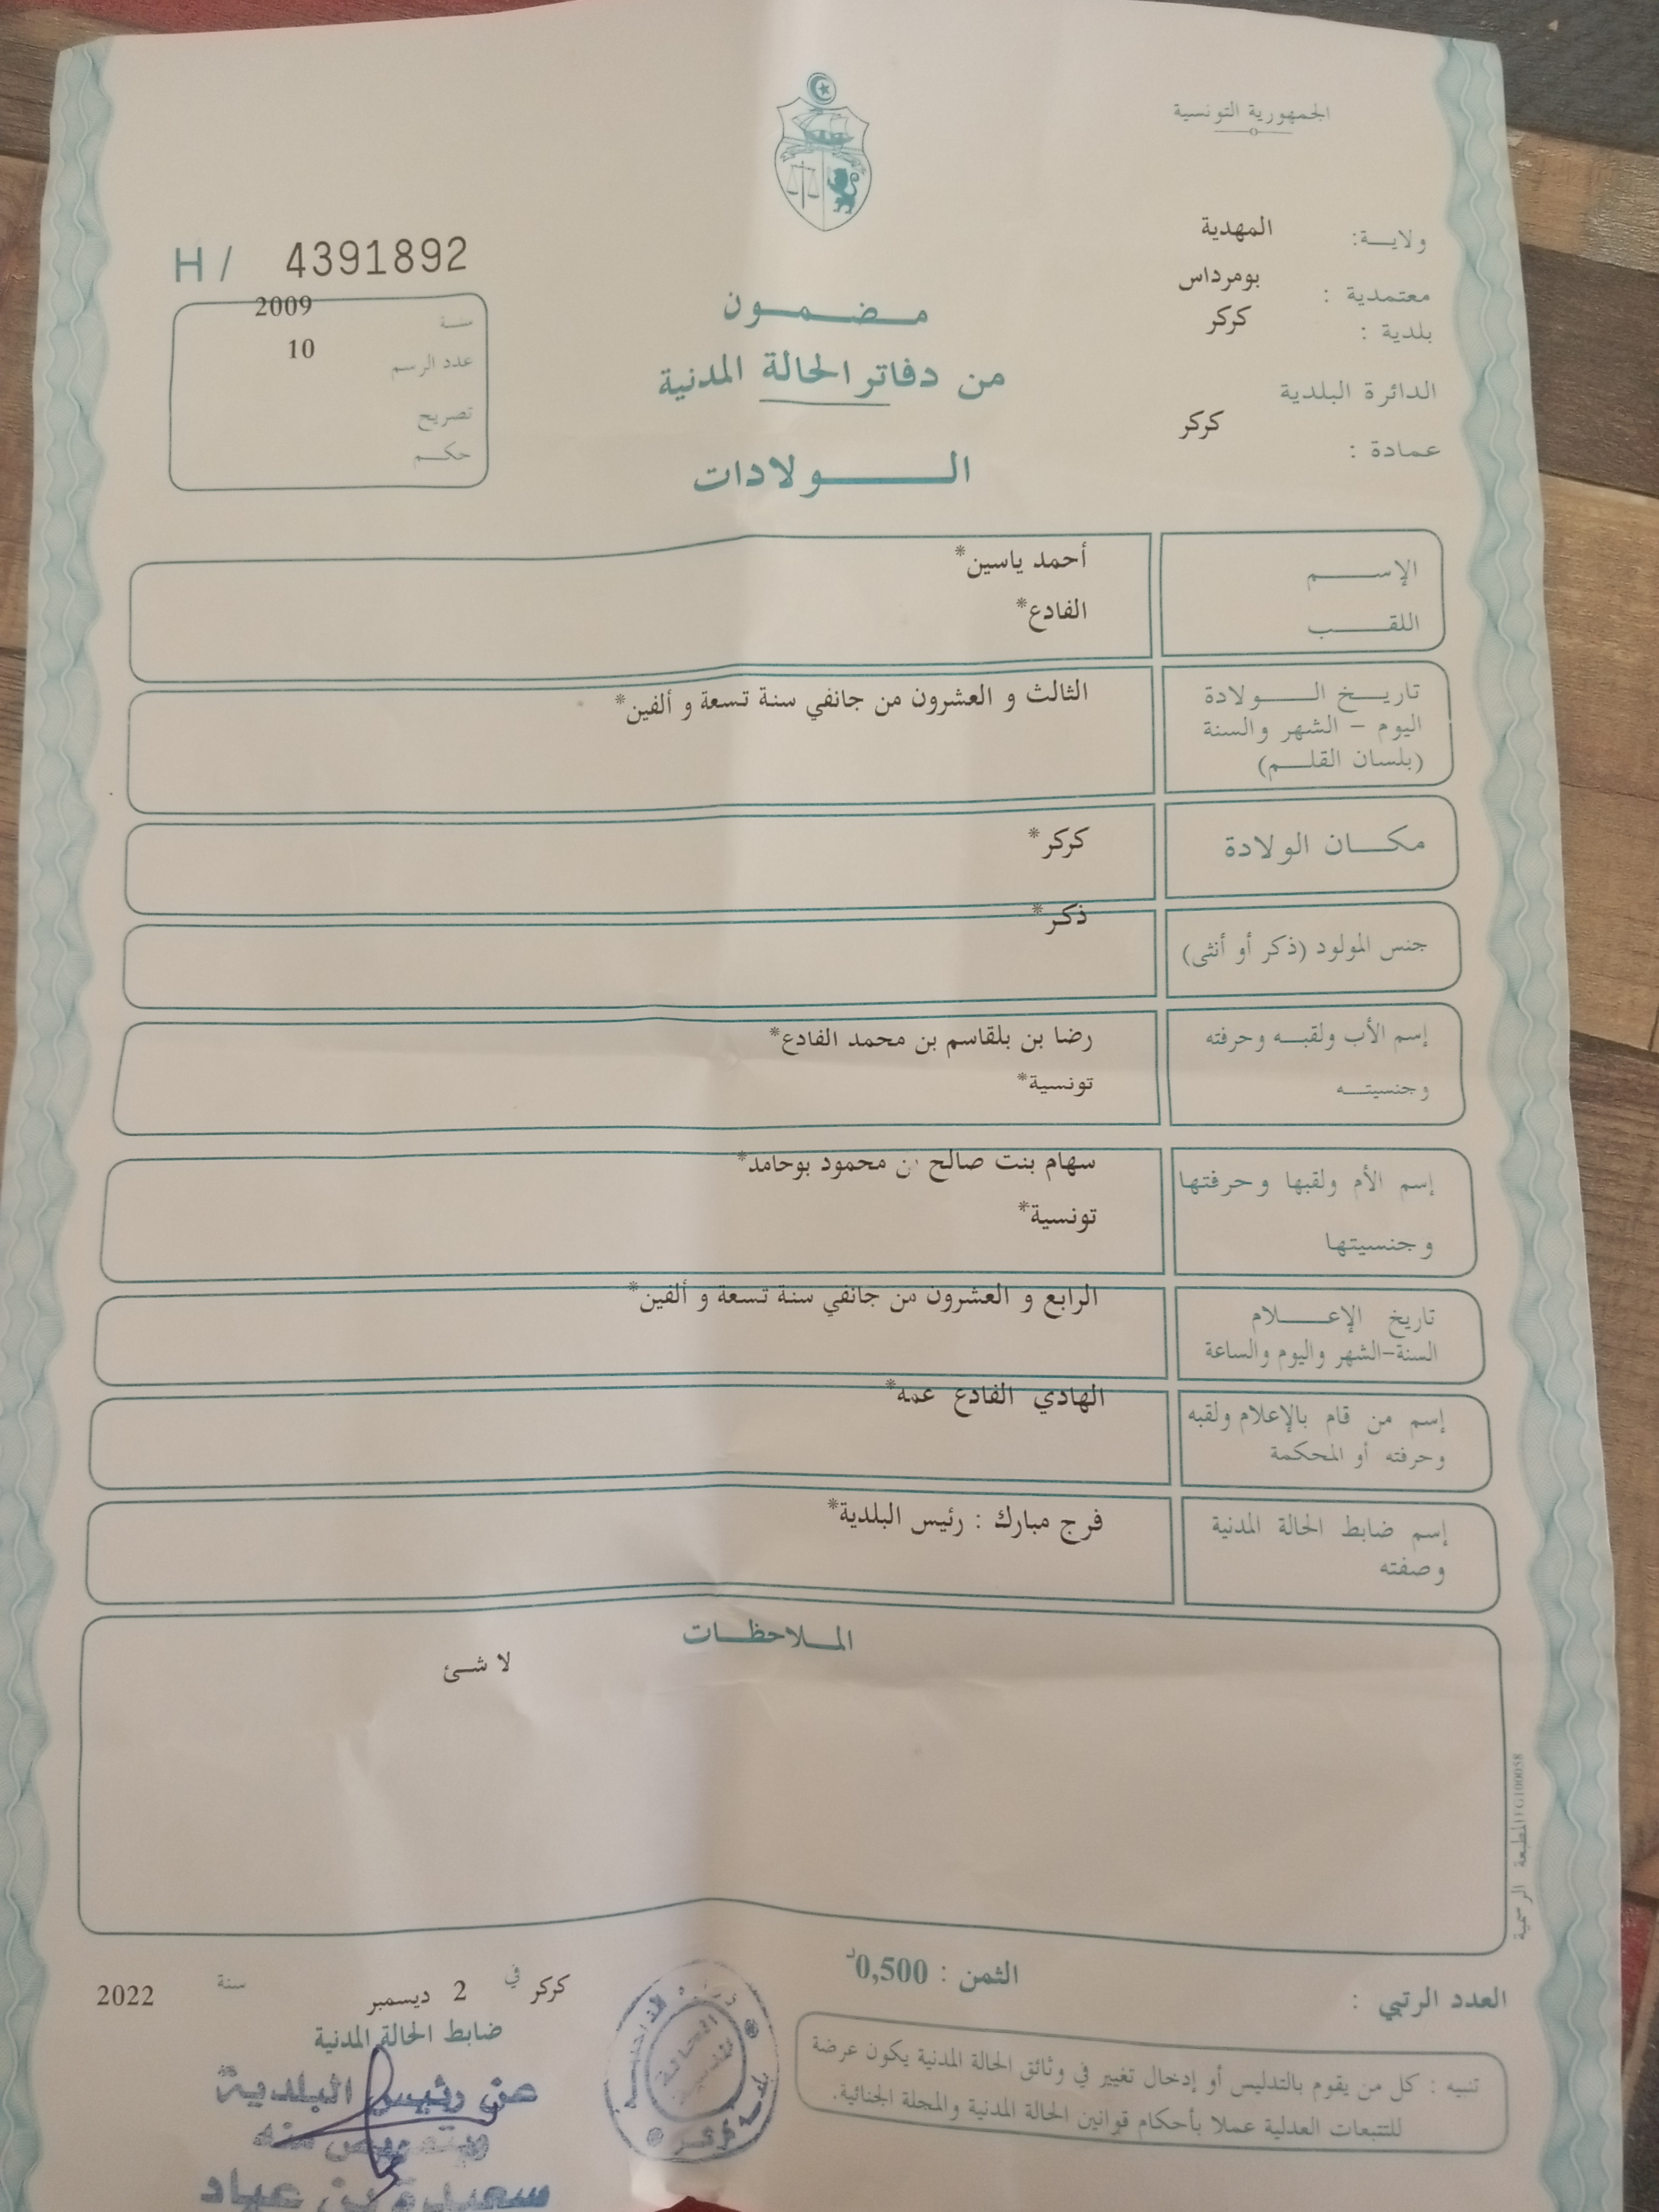 الجمهورية التونسية
ولايـــة: المهدية
معتمدية : بومرداس
بلدية : كركر
الدائرة البلدية
عمادة : كركر
مـضـمـون
من دفاتر الحالة المدنية
الـــولادات
H / 4391892
سنـة 2009
عدد الرسم 10
تصريح
حكـم
الإســـم أحمد ياسين*
اللقـــب الفادع*
تاريـخ الـــولادة الثالث و العشرون من جانفي سنة تسعة و ألفين*
اليوم – الشهر والسنة
(بلسان القلـم)
مكـــان الولادة كركر*
جنس المولود (ذكر أو أنثى) ذكر*
إسم الأب ولقبـه وحرفته رضا بن بلقاسم بن محمد الفادع*
وجنسيتـه تونسية*
إسم الأم ولقبها وحرفتها سهام بنت صالح بن محمود بوحامد*
وجنسيتها تونسية*
تاريخ الإعـــلام الرابع و العشرون من جانفي سنة تسعة و ألفين*
السنة-الشهر واليوم والساعة
إسم من قام بالإعلام ولقبه الهادي الفادع عمه*
وحرفته أو المحكمة
إسم ضابط الحالة المدنية فرج مبارك : رئيس البلدية*
وصفته
المـلاحظـات
لا شئ
المطبعة الرسمية FG100058
العدد الرتبي :
الثمن : 0,500د
كركر في 2 ديسمبر سنة 2022
ضابط الحالة المدنية
تنبيه : كل من يقوم بالتدليس أو إدخال تغيير في وثائق الحالة المدنية يكون عرضة
للتتبعات العدلية عملا بأحكام قوانين الحالة المدنية والمجلة الجنائية.
الحالة
المدنية
عن رئيس البلدية
وبتفويض منه
سعيدة بن عياد